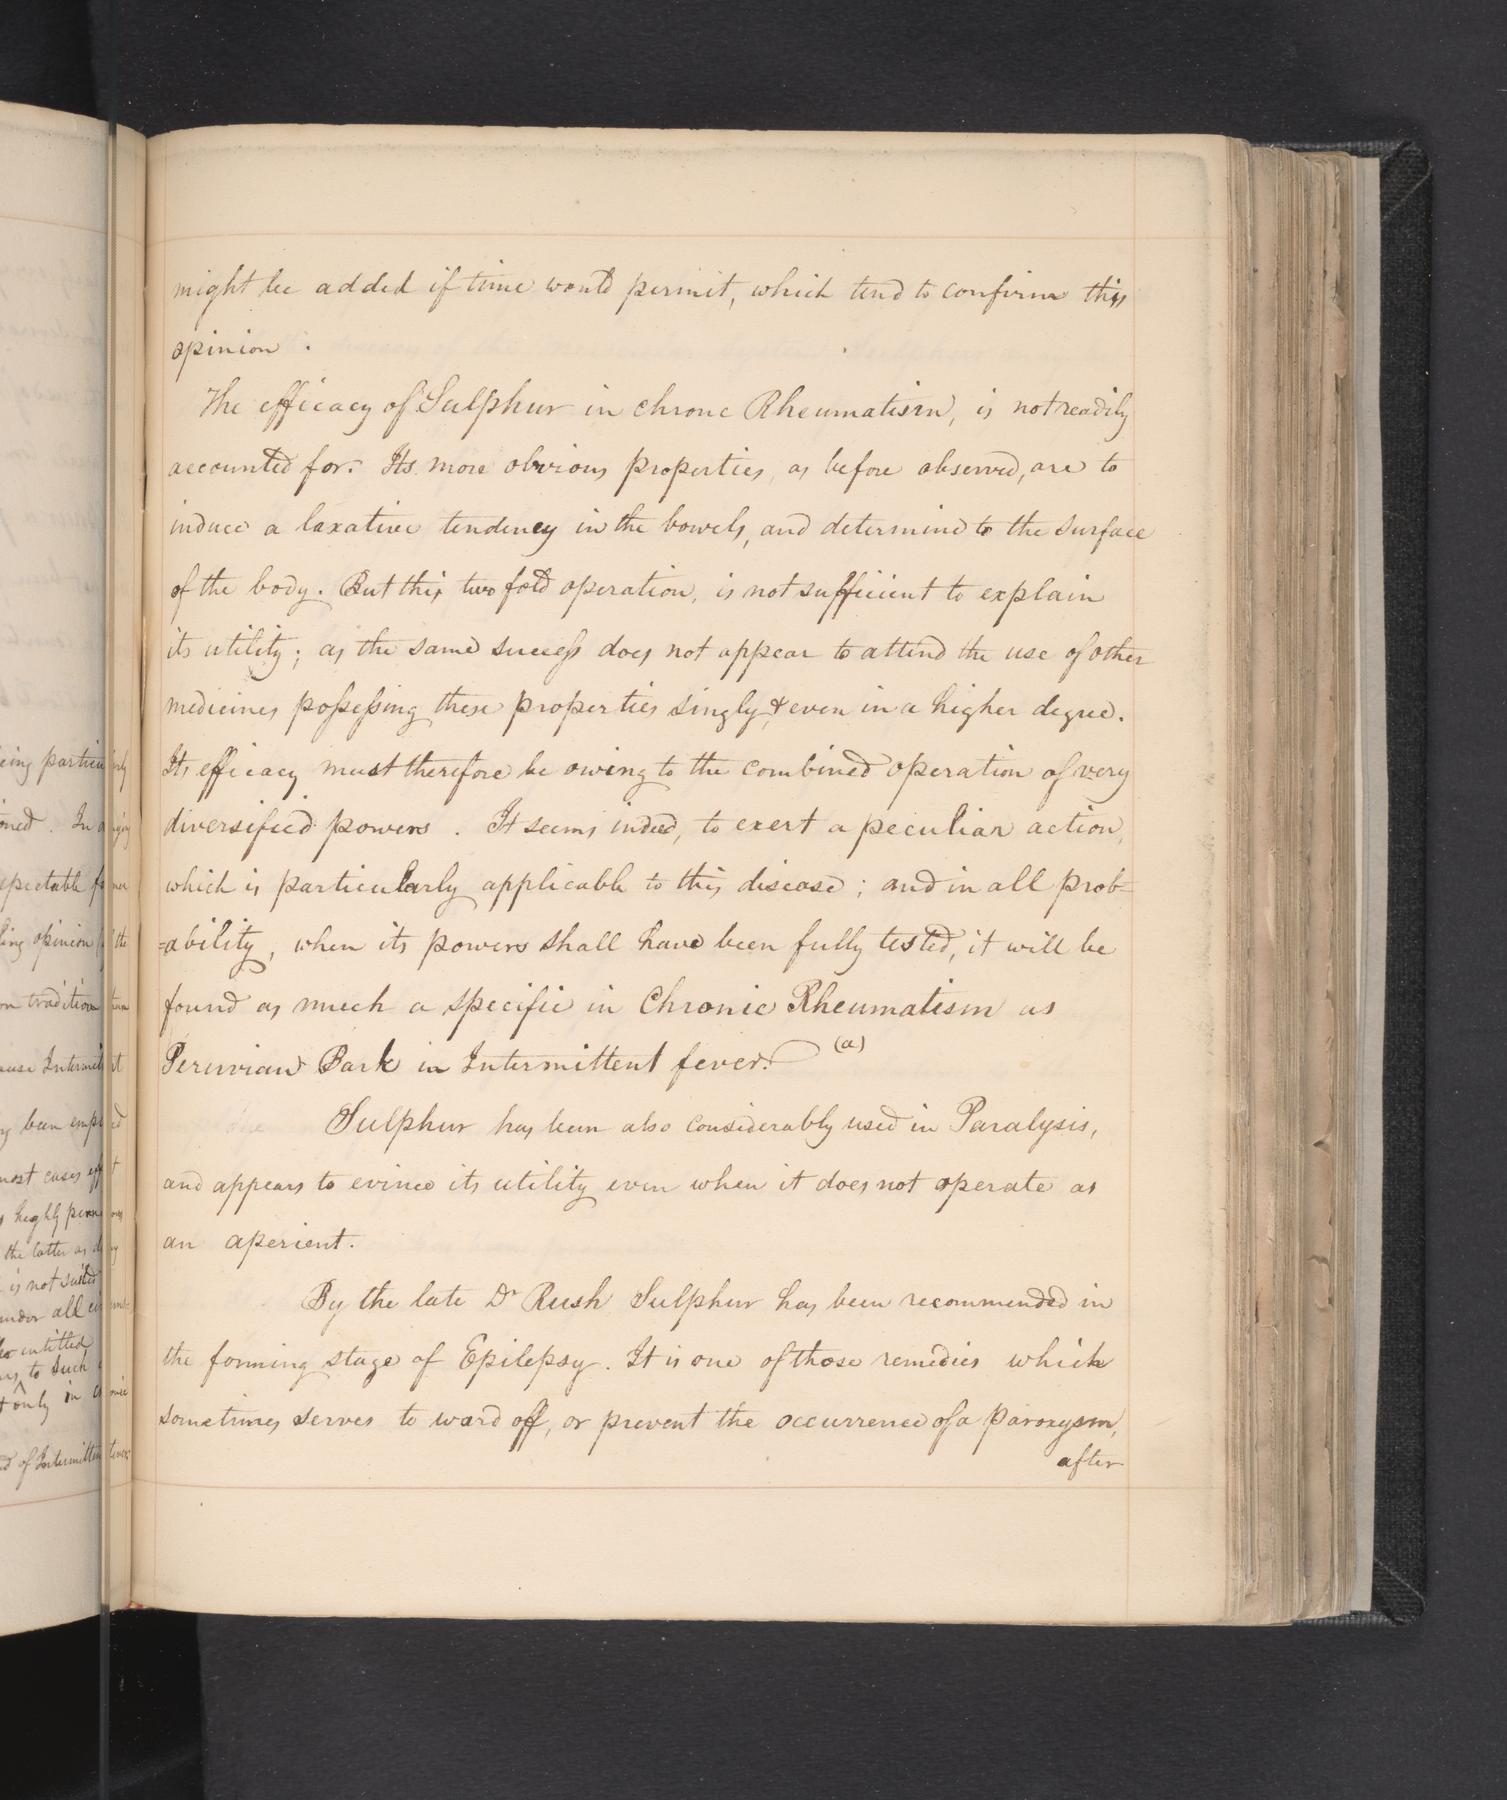 might be added if time would permit, which tend to confirm this
opinion.
The efficacy of Sulphur in chronc Rheumatism, is not readily
accounted for. Its more obvious properties, as before observed, are to
induce a laxative tendency in the bowels, and determine to the surface
of the body. But this two fold operation, is not sufficient to explain
its utility; as the same success does not appear to attend the use of other
medicines possessing these properties singly, & even in a higher degree.
Its efficacy must therefore be owing to the combined operation of very
diversified powers. It seems indeed, to exert a peculiar action,
which is particularly applicable to this disease; and in all prob=
=ability, when its powers shall have been fully tested, it will be
found as much a specific in Chronic Rheumatism as
Peruvian Bark in Intermittent fever. (a)
Sulphur has been also considerably used in Paralysis,
and appears to evince its utility even when it does not operate as
an aperient.
By the late Dr Rush Sulphur has been recommended in
the forming stage of Epilepsy. It is one of those remedies which
sometimes serves to ward off, or prevent the occurrence of a paroxysm,
after